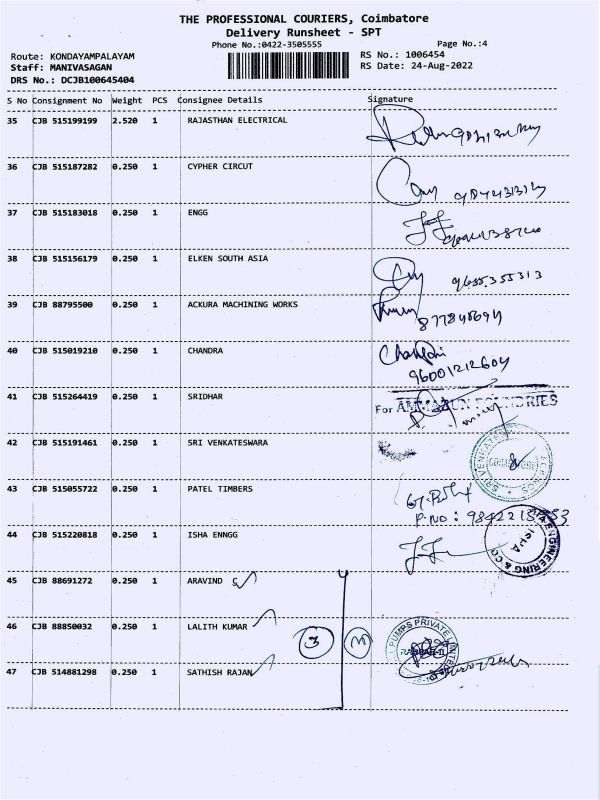 THE PROFESSIONAL COURIERS, Coimbatore
Delivery Runsheet - SPT
Phone No.:0422-3505555
Page No.:4
Route: KONDAYAMPALAYAM
RS No.: 1006454
Staff: MANIVASAGAN
RS Date: 24-Aug-2022
DRS No.: DCJB100645404
S No Consignment No Weight PCS Consignee Details Signature
35 CJB 515199199 2.520 1 RAJASTHAN ELECTRICAL
36 CJB 515187282 0.250 1 CYPHER CIRCUT
37 CJB 515183018 0.250 1 ENGG
38 CJB 515156179 0.250 1 ELKEN SOUTH ASIA
9655355313
39 CJB 88795500 0.250 1 ACKURA MACHINING WORKS
40 CJB 515019210 0.250 1 CHANDRA
96001212604
41 CJB 515264419 0.250 1 SRIDHAR
For AMMARUN FOUNDRIES
42 CJB 515191461 0.250 1 SRI VENKATESWARA
SRI VENKATES
43 CJB 515055722 0.250 1 PATEL TIMBERS
P.NO :
44 CJB 515220818 0.250 1 ISHA ENNGG
ISHA ENGINEERING & CO
45 CJB 88691272 0.250 1 ARAVIND G
46 CJB 88850032 0.250 1 LALITH KUMAR
3
PUMPS PRIVATE
47 CJB 514881298 0.250 1 SATHISH RAJAN